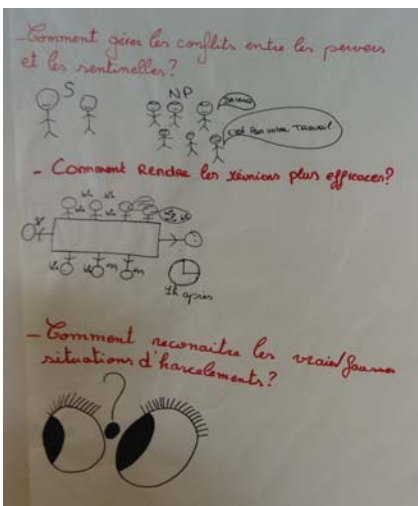 - Comment gérer les conflits entre les pervers
et les sentinelles?
S
NP
c'est pas votre Travail
- Comment Rendre les réunions plus efficaces?
1h après
- Comment reconaitre les vraies/fausses
situations d'harcelements?
?